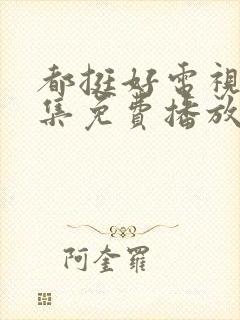 都挺好電視
集免費播放
阿奎羅